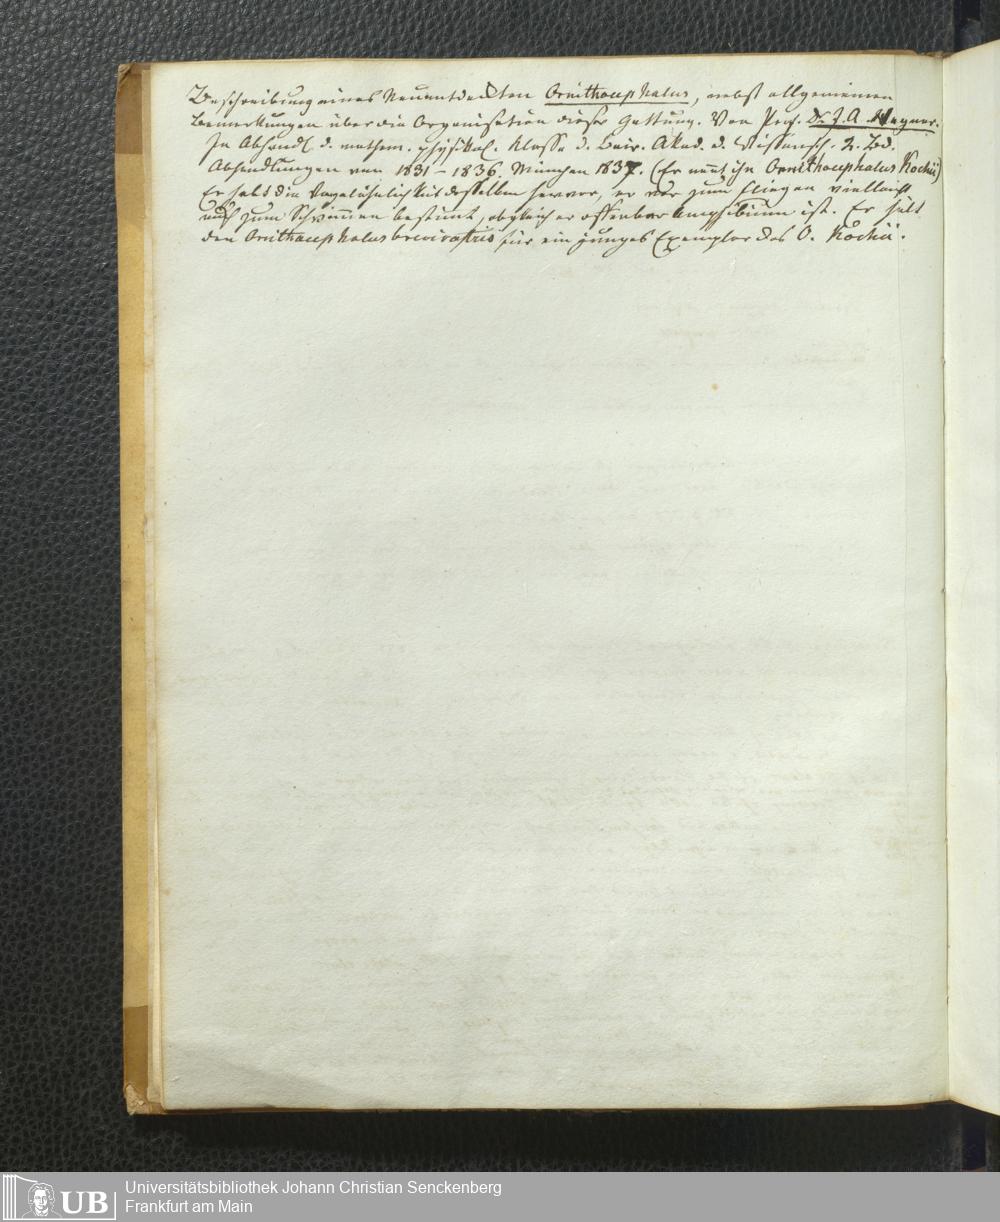 Beschreibung eines neuentdeckten Ornithocephalus, nebst allgemeinen
Bemerkungen über die Organisation dieser Gattung. Von Prof. Dr. J. A. Wagner.
In Abhandl. d. mathem. physikal. Klasse d. Bair. Akad. d. Wissensch. 2. Bd.
Abhandlungen von 1831–1836. München 1837. (Er nennt ihn Ornithocephalus Kochii)
Er hebt die Vogelähnlichkeit desselben hervor, er war zum fliegen vielleicht
auch zum Schwimmen bestimmt, obgleich er offenbar Amphibium ist. Er hält
den Ornithocephalus brevirostris für ein junges Exemplar des O. Kochii.
UB
Universitätsbibliothek Johann Christian Senckenberg
Frankfurt am Main